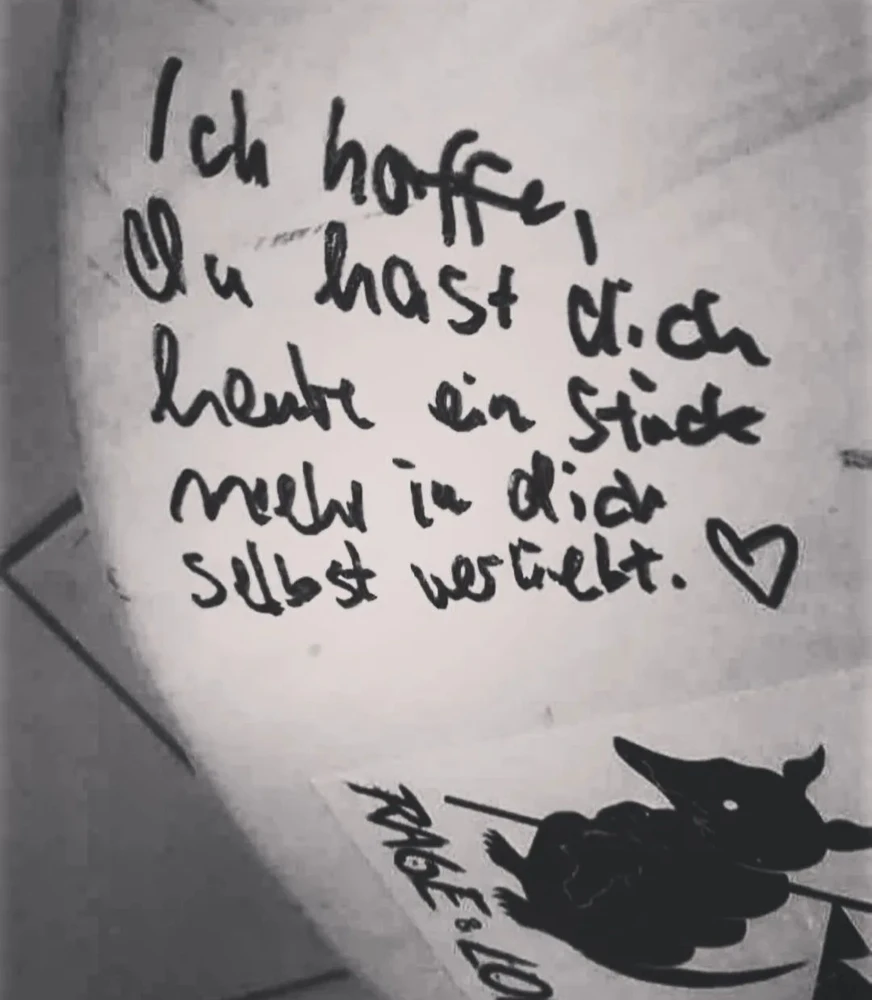 Ich hoffe,
Du hast dich
heute ein Stück
mehr in dich
selbst verliebt.
RAGE & LO